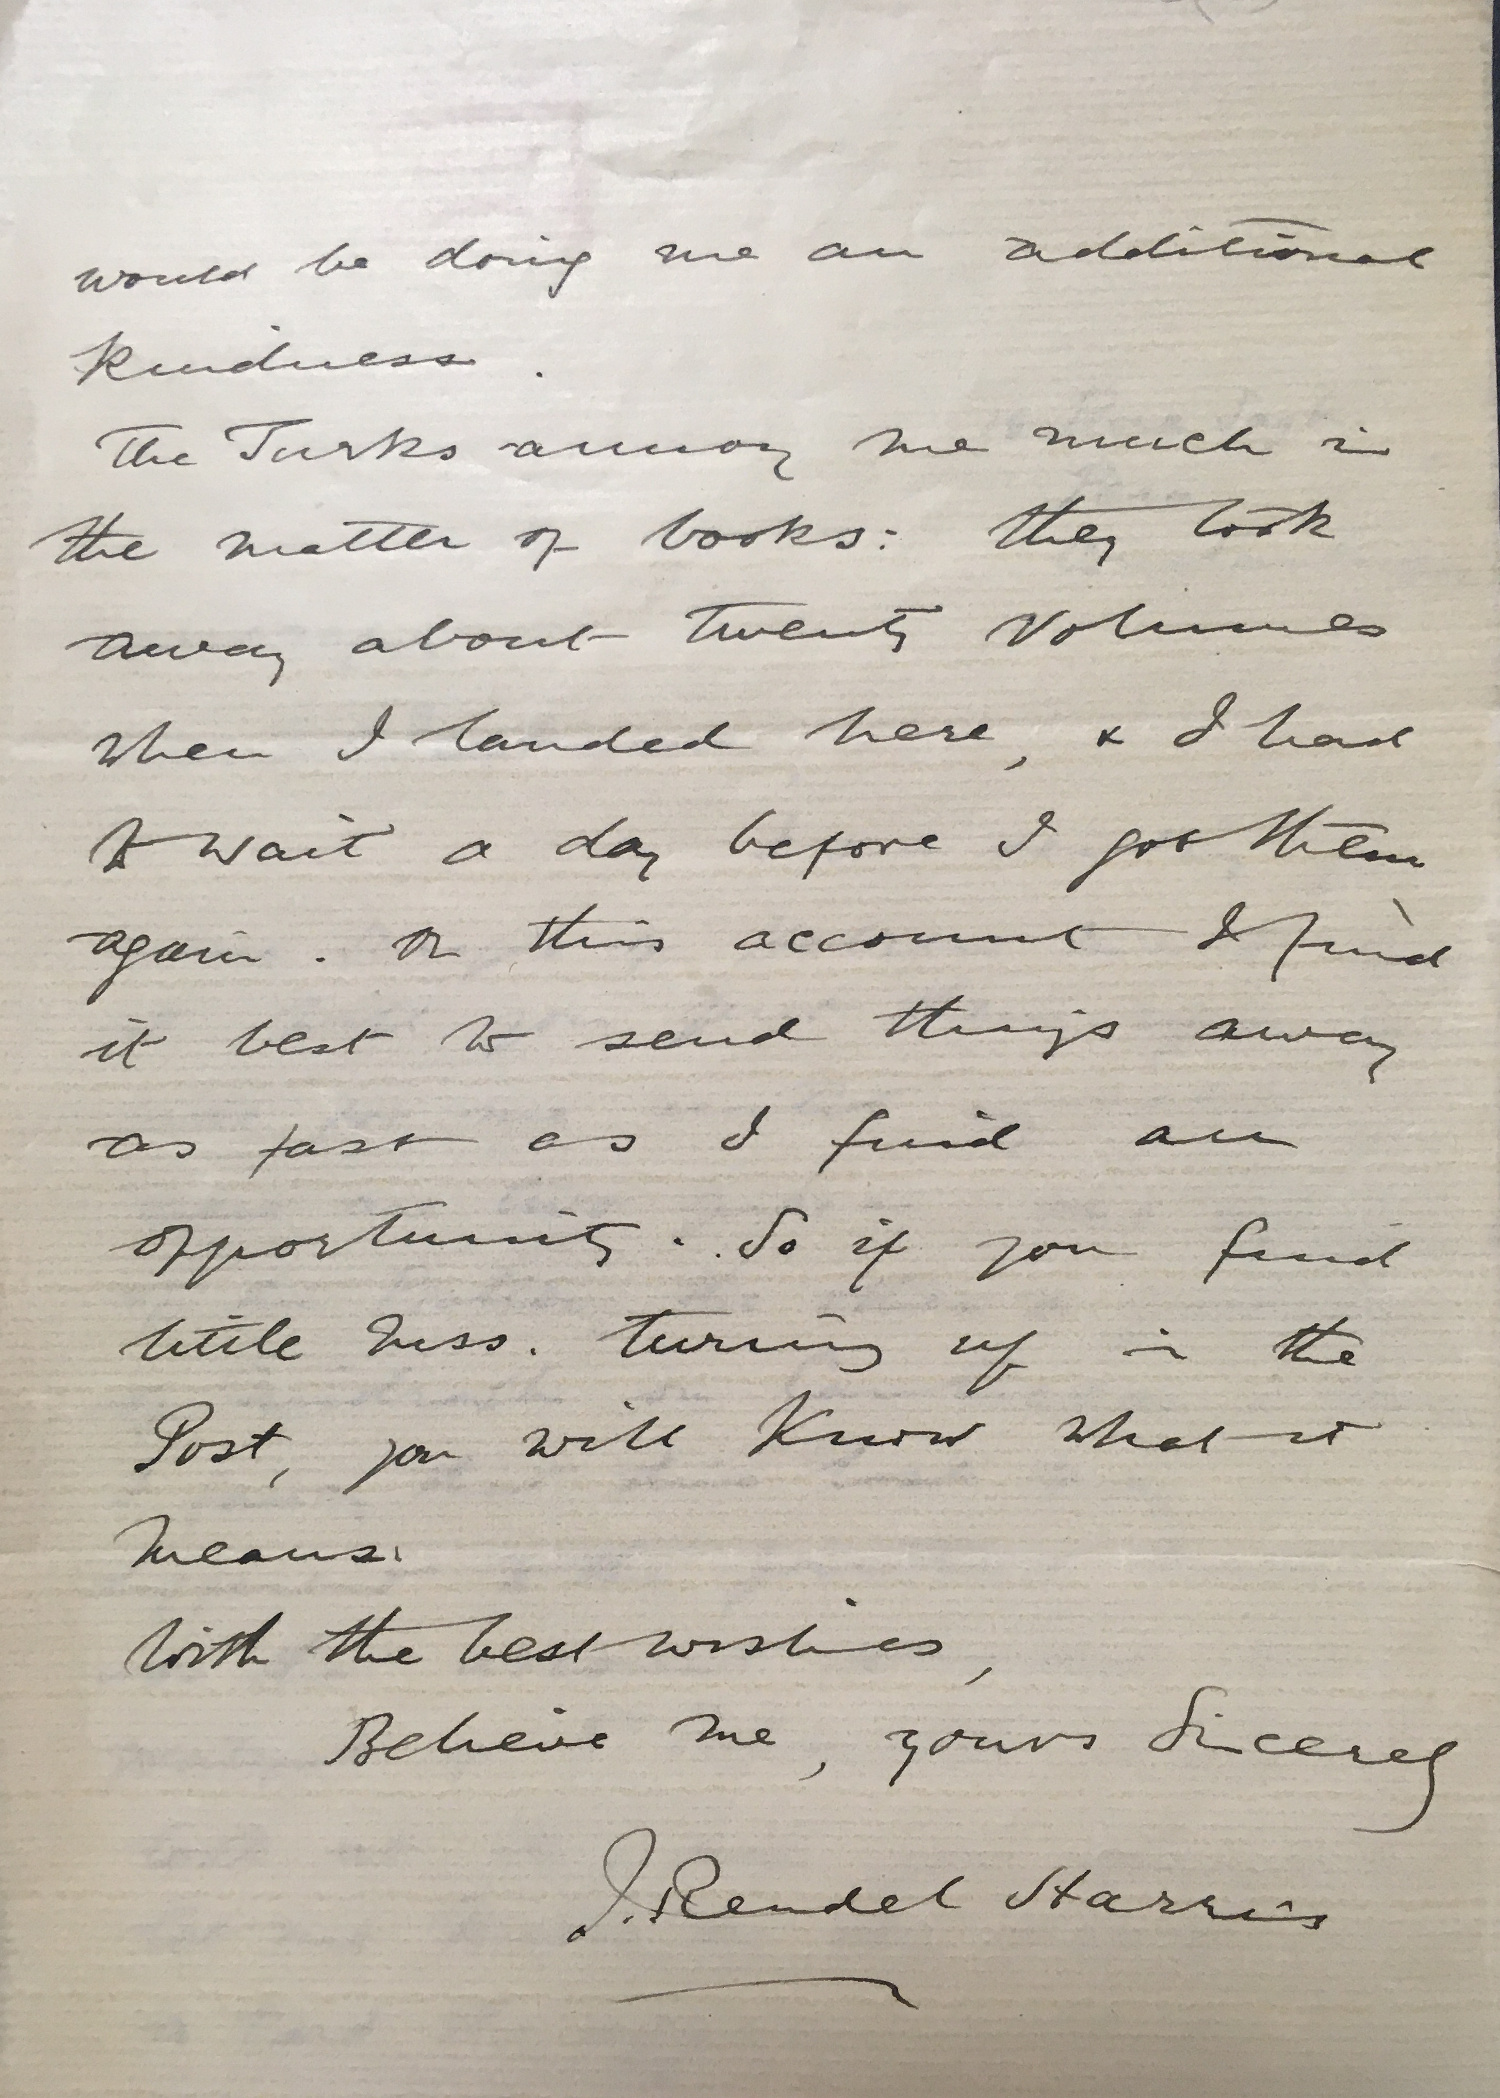 would be doing me an additional
kindness.
The Turks annoy me much in
the matter of books: they took
away about twenty volumes
when I landed here, & I had
to wait a day before I got them
again. On this account I find
it best to send things away
as fast as I find an
opportunity. So if you find
little mss. turning up in the
Post, you will know what it
means.
With the best wishes,
Believe me, yours sincerely
J. Rendel Harris